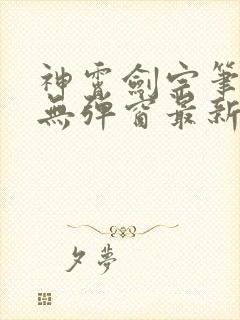 神霄劍宗筆
無彈窗最新
夕夢